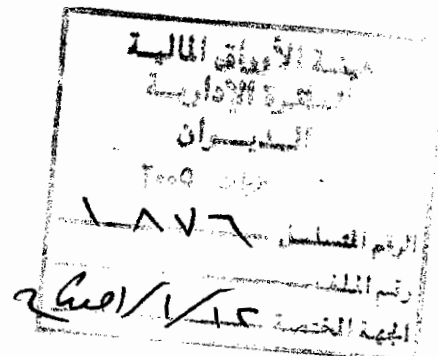 هيئة الأوراق المالية
الدائرة الإدارية
الديوان
٢٠٠٩
الرقم المتسلسل ١٨٧٦
رقم الملف
الجهة المختصة ١٢/١/